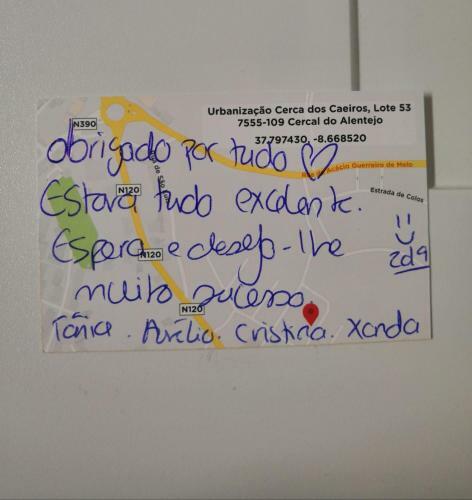 Urbanização Cerca dos Caeiros, Lote 53
7555-109 Cercal do Alentejo
37.797430, -8.668520
N390
obrigado por tudo ♡
Rua de Acácio Guerreiro de Melo
Estrada de Colos
N120
Estava tudo excelente.
Espera e desejo-lhe
N120
muito sucesso.
2d9
N120
Tânia. Aurélio. Cristina. Xanda